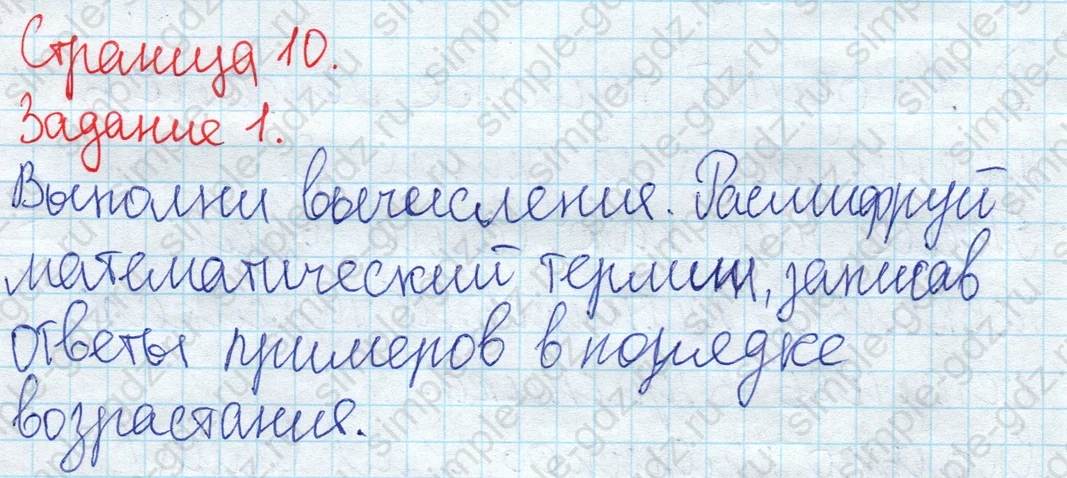 Страница 10.
Задание 1.
Выполни вычисления. Расшифруй
математический термин, записав
ответы примеров в порядке
возрастания.
simple-gdz.ru